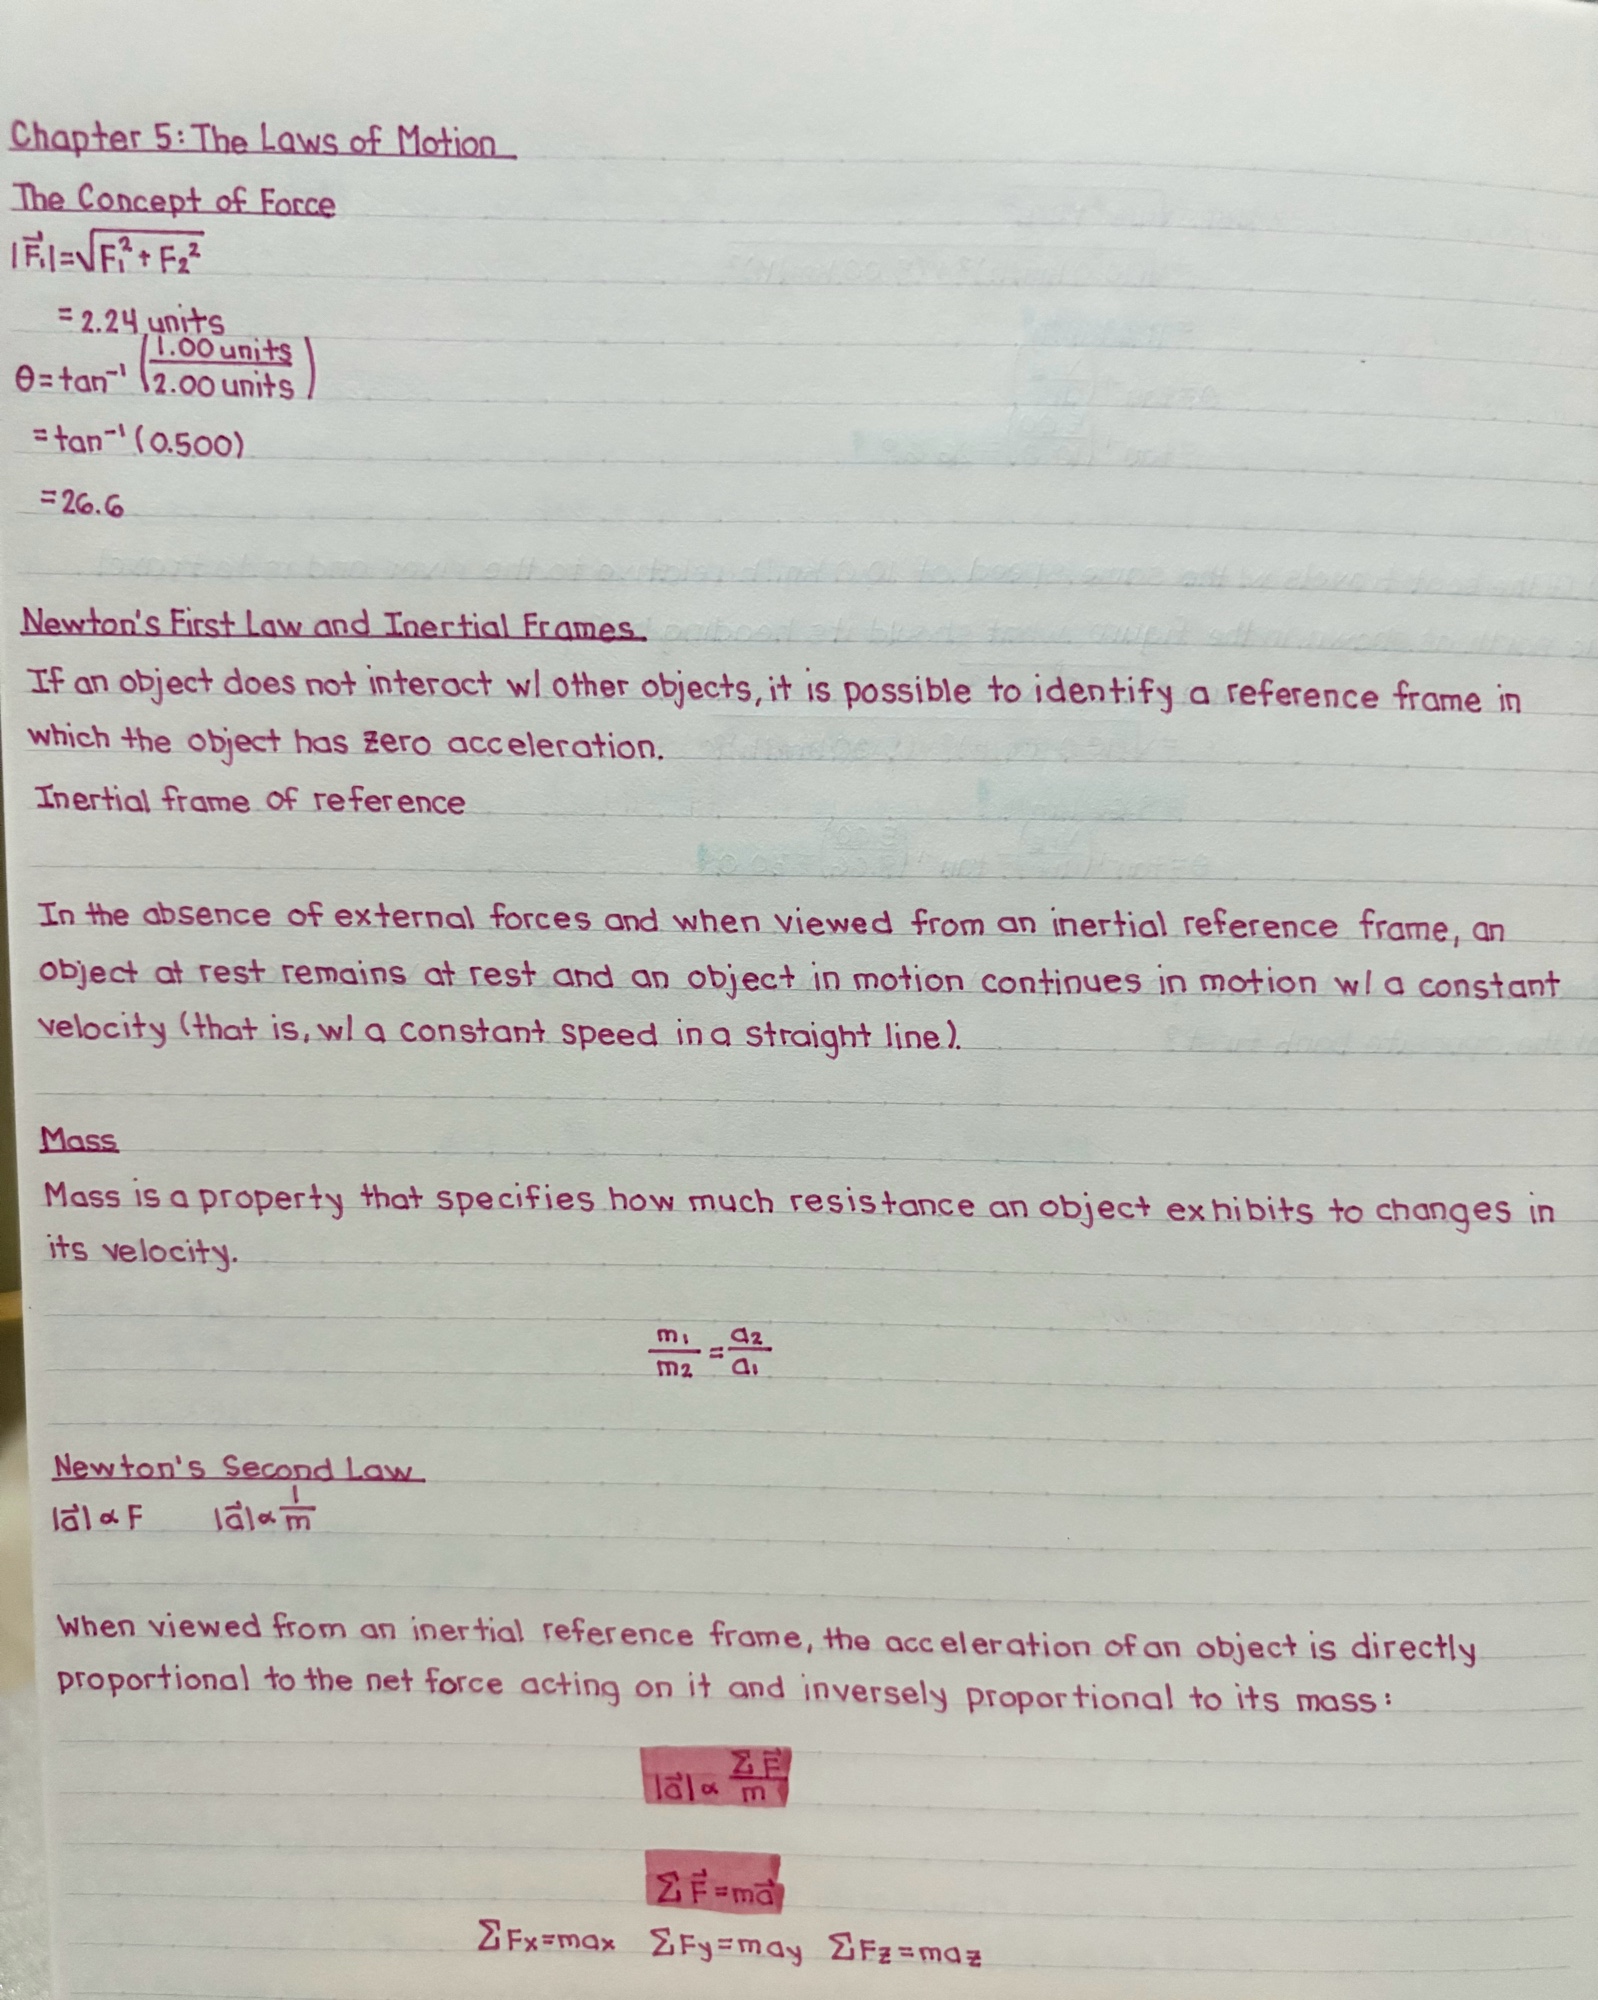 Chapter 5: The Laws of Motion
The Concept of Force
|F⃗₁| = √(F₁² + F₂²)
= 2.24 units
θ = tan⁻¹ (1.00 units / 2.00 units)
= tan⁻¹ (0.500)
= 26.6
Newton's First Law and Inertial Frames
If an object does not interact w/ other objects, it is possible to identify a reference frame in
which the object has zero acceleration.
Inertial frame of reference
In the absence of external forces and when viewed from an inertial reference frame, an
object at rest remains at rest and an object in motion continues in motion w/ a constant
velocity (that is, w/ a constant speed in a straight line).
Mass
Mass is a property that specifies how much resistance an object exhibits to changes in
its velocity.
m₁/m₂ = a₂/a₁
Newton's Second Law
|a⃗| ∝ F |a⃗| ∝ 1/m
When viewed from an inertial reference frame, the acceleration of an object is directly
proportional to the net force acting on it and inversely proportional to its mass:
|a⃗| ∝ ΣF⃗/m
ΣF⃗ = ma⃗
ΣFx = max ΣFy = may ΣFz = maz